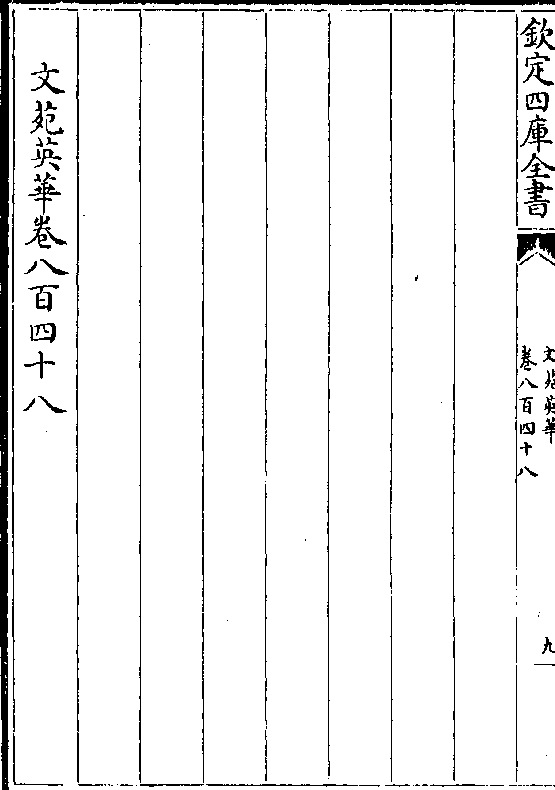 欽定四庫全書
文苑英華
卷八百四十八
九
文苑英華卷八百四十八